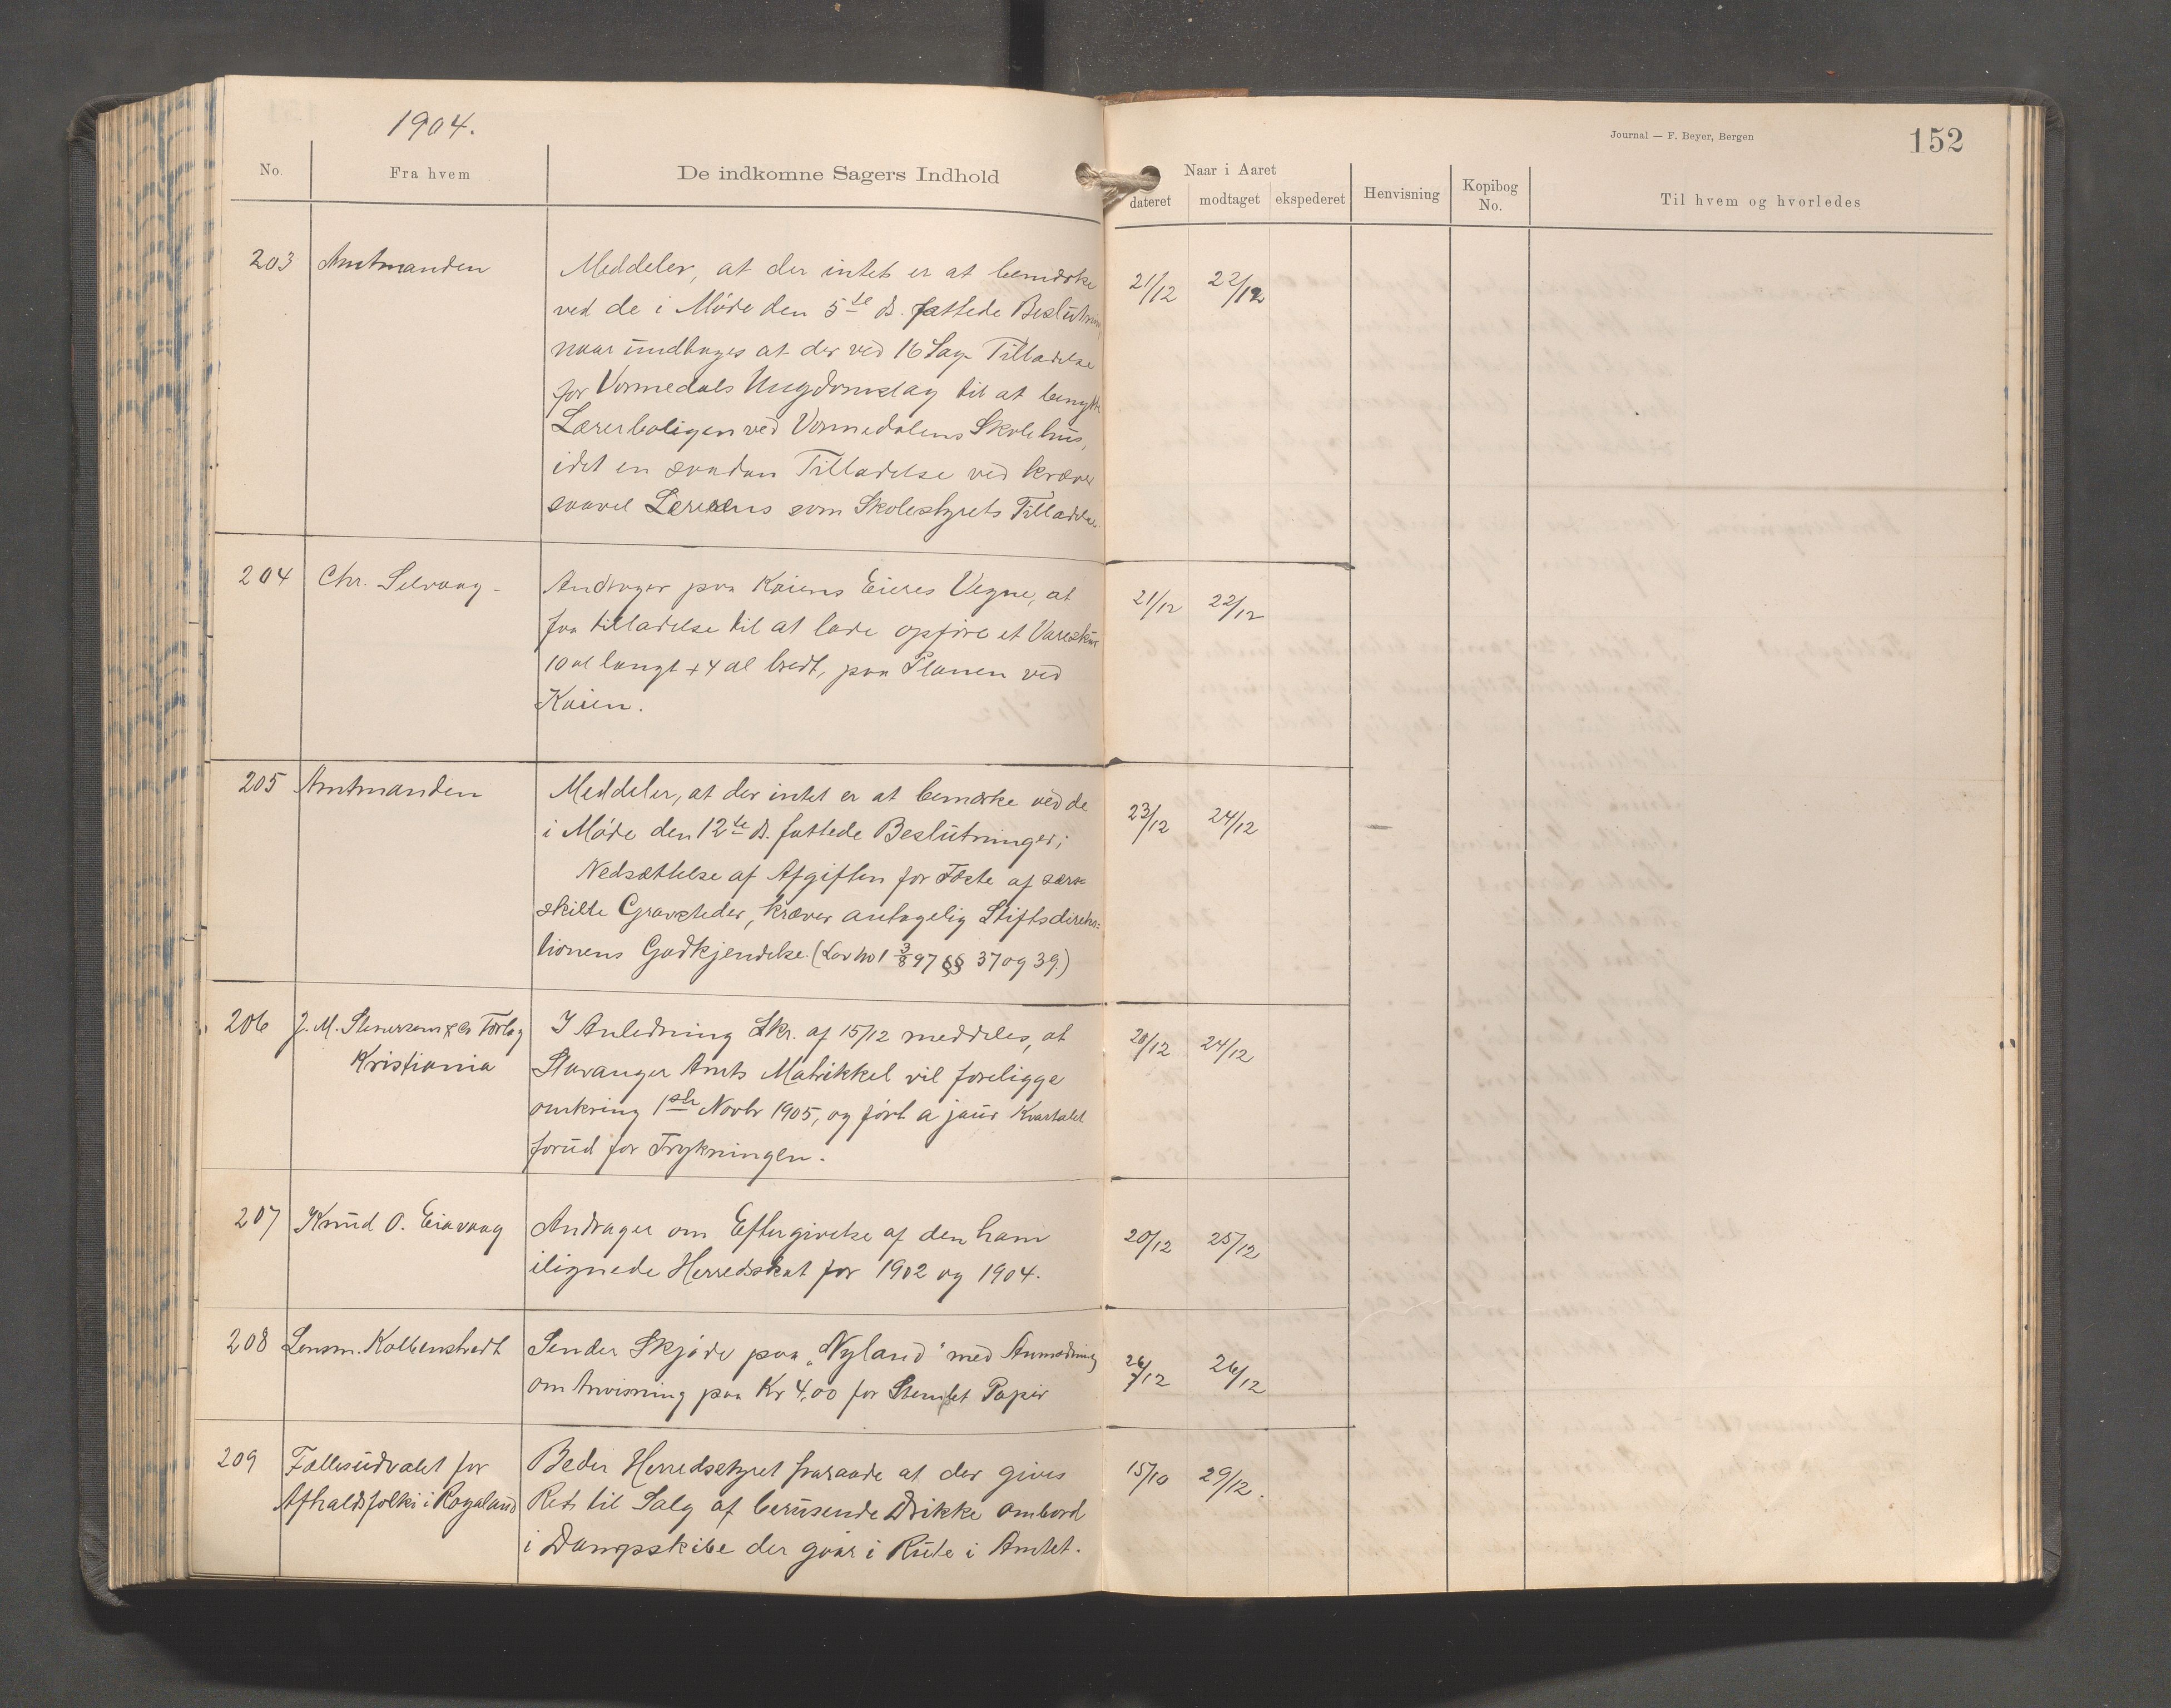 1904.
Journal — F. Beyer, Bergen
152
No.
Fra hvem
De indkomne Sagers Indhold
Naar i Aaret
dateret
modtaget
ekspederet
Henvisning
Kopibog No.
Til hvem og hvorledes
203 Amtmanden
Meddeler, at der intet er at bemærke 21/12 22/12
ved de i Møde den 5te ds. fattede Beslutning
naar undtages at der ved 16 Sag Tilladelse
for Vormedals Ungdomslag til at benytte
Lærerboligen ved Vormedalens Skolehus,
idet en saadan Tilladelse ved kræver
saavel Lærerens som Skolestyrets Tilladelse
204 Chr. Selvaag -
Andrager paa Kaiens Eieres Vegne, at 21/12 22/12
faa tilladelse til at lade opføre et Vareskur
10 al langt + 4 al bredt, paa Planen ved
Kaien.
205 Amtmanden
Meddeler, at der intet er at bemærke ved de 23/12 24/12
i Møde den 12te ds. fattede Beslutninger;
Nedsættelse af Afgiften for Fæste af sær-
skilte Gravsteder, kræver antagelig Stiftsdirek-
tionens Godkjendelse. (Lov No 1 3/8 97 §§ 37 og 39.)
206 J. M. Stenersen & Co Forlag
Kristiania
I Anledning Skr. af 15/12 meddeles, at 20/12 24/12
Stavanger Amts Matrikkel vil foreligge
omkring 1ste Novbr 1905, og ført a jour Kvartalet
forud for Trykningen.
207 Knud O. Eiavaag
Andrager om Eftergivelse af den ham 20/12 25/12
ilignede Herredsskat for 1902 og 1904.
208 Lensm. Kolbenstvedt
Sender Skjøde paa "Nyland" med Anmodning 26/12 26/12
om Anvisning paa Kr 4,00 for Stemplet Papir
209 Fællesudvalet for
Afholdsfolk i Rogaland
Beder Herredsstyret fraraade at der gives 15/10 29/12.
Ret til Salg af berusende Drikke ombord
i Dampskibe der gaar i Rute i Amtet.